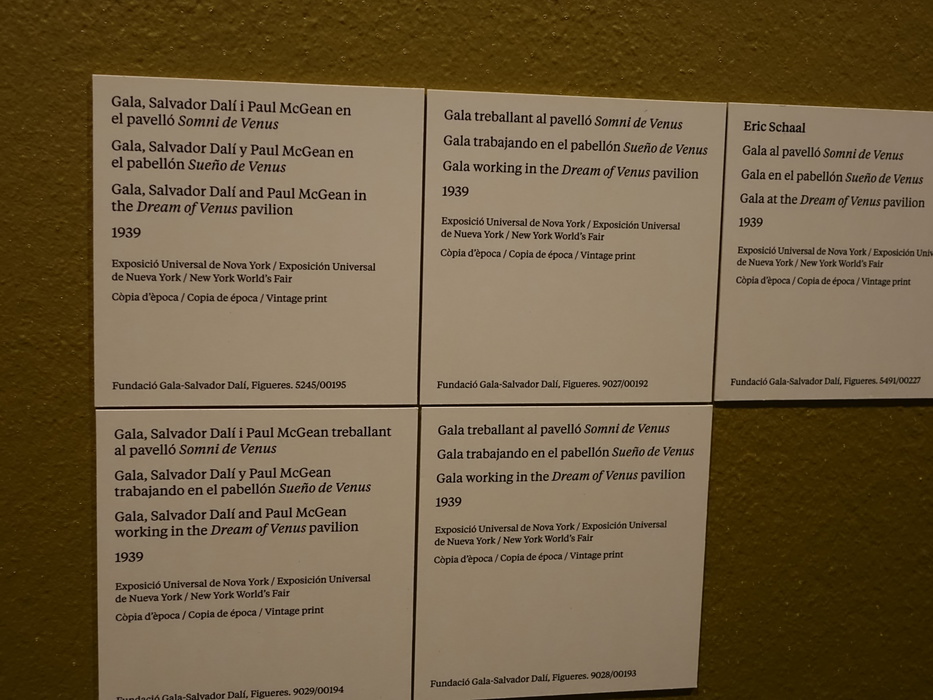 Gala, Salvador Dalí i Paul McGean en
el pavelló Somni de Venus
Gala, Salvador Dalí y Paul McGean en
el pabellón Sueño de Venus
Gala, Salvador Dalí and Paul McGean in
the Dream of Venus pavilion
1939
Exposició Universal de Nova York / Exposición Universal
de Nueva York / New York World's Fair
Còpia d'època / Copia de época / Vintage print
Fundació Gala-Salvador Dalí, Figueres. 5245/00195
Gala treballant al pavelló Somni de Venus
Gala trabajando en el pabellón Sueño de Venus
Gala working in the Dream of Venus pavilion
1939
Exposició Universal de Nova York / Exposición Universal
de Nueva York / New York World's Fair
Còpia d'època / Copia de época / Vintage print
Fundació Gala-Salvador Dalí, Figueres. 9027/00192
Eric Schaal
Gala al pavelló Somni de Venus
Gala en el pabellón Sueño de Venus
Gala at the Dream of Venus pavilion
1939
Exposició Universal de Nova York / Exposición Univ
de Nueva York / New York World's Fair
Còpia d'època / Copia de época / Vintage print
Fundació Gala-Salvador Dalí, Figueres. 5491/00227
Gala, Salvador Dalí i Paul McGean treballant
al pavelló Somni de Venus
Gala, Salvador Dalí y Paul McGean
trabajando en el pabellón Sueño de Venus
Gala, Salvador Dalí and Paul McGean
working in the Dream of Venus pavilion
1939
Exposició Universal de Nova York / Exposición Universal
de Nueva York / New York World's Fair
Còpia d'època / Copia de época / Vintage print
Fundació Gala-Salvador Dalí, Figueres. 9029/00194
Gala treballant al pavelló Somni de Venus
Gala trabajando en el pabellón Sueño de Venus
Gala working in the Dream of Venus pavilion
1939
Exposició Universal de Nova York / Exposición Universal
de Nueva York / New York World's Fair
Còpia d'època / Copia de época / Vintage print
Fundació Gala-Salvador Dalí, Figueres. 9028/00193